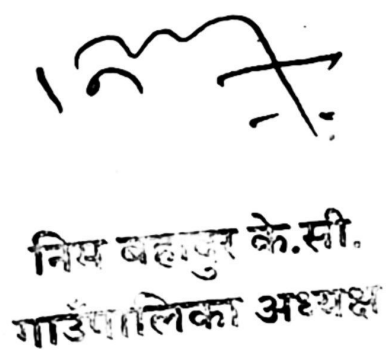 निम बहादुर के.सी.
गाउँपालिका अध्यक्ष